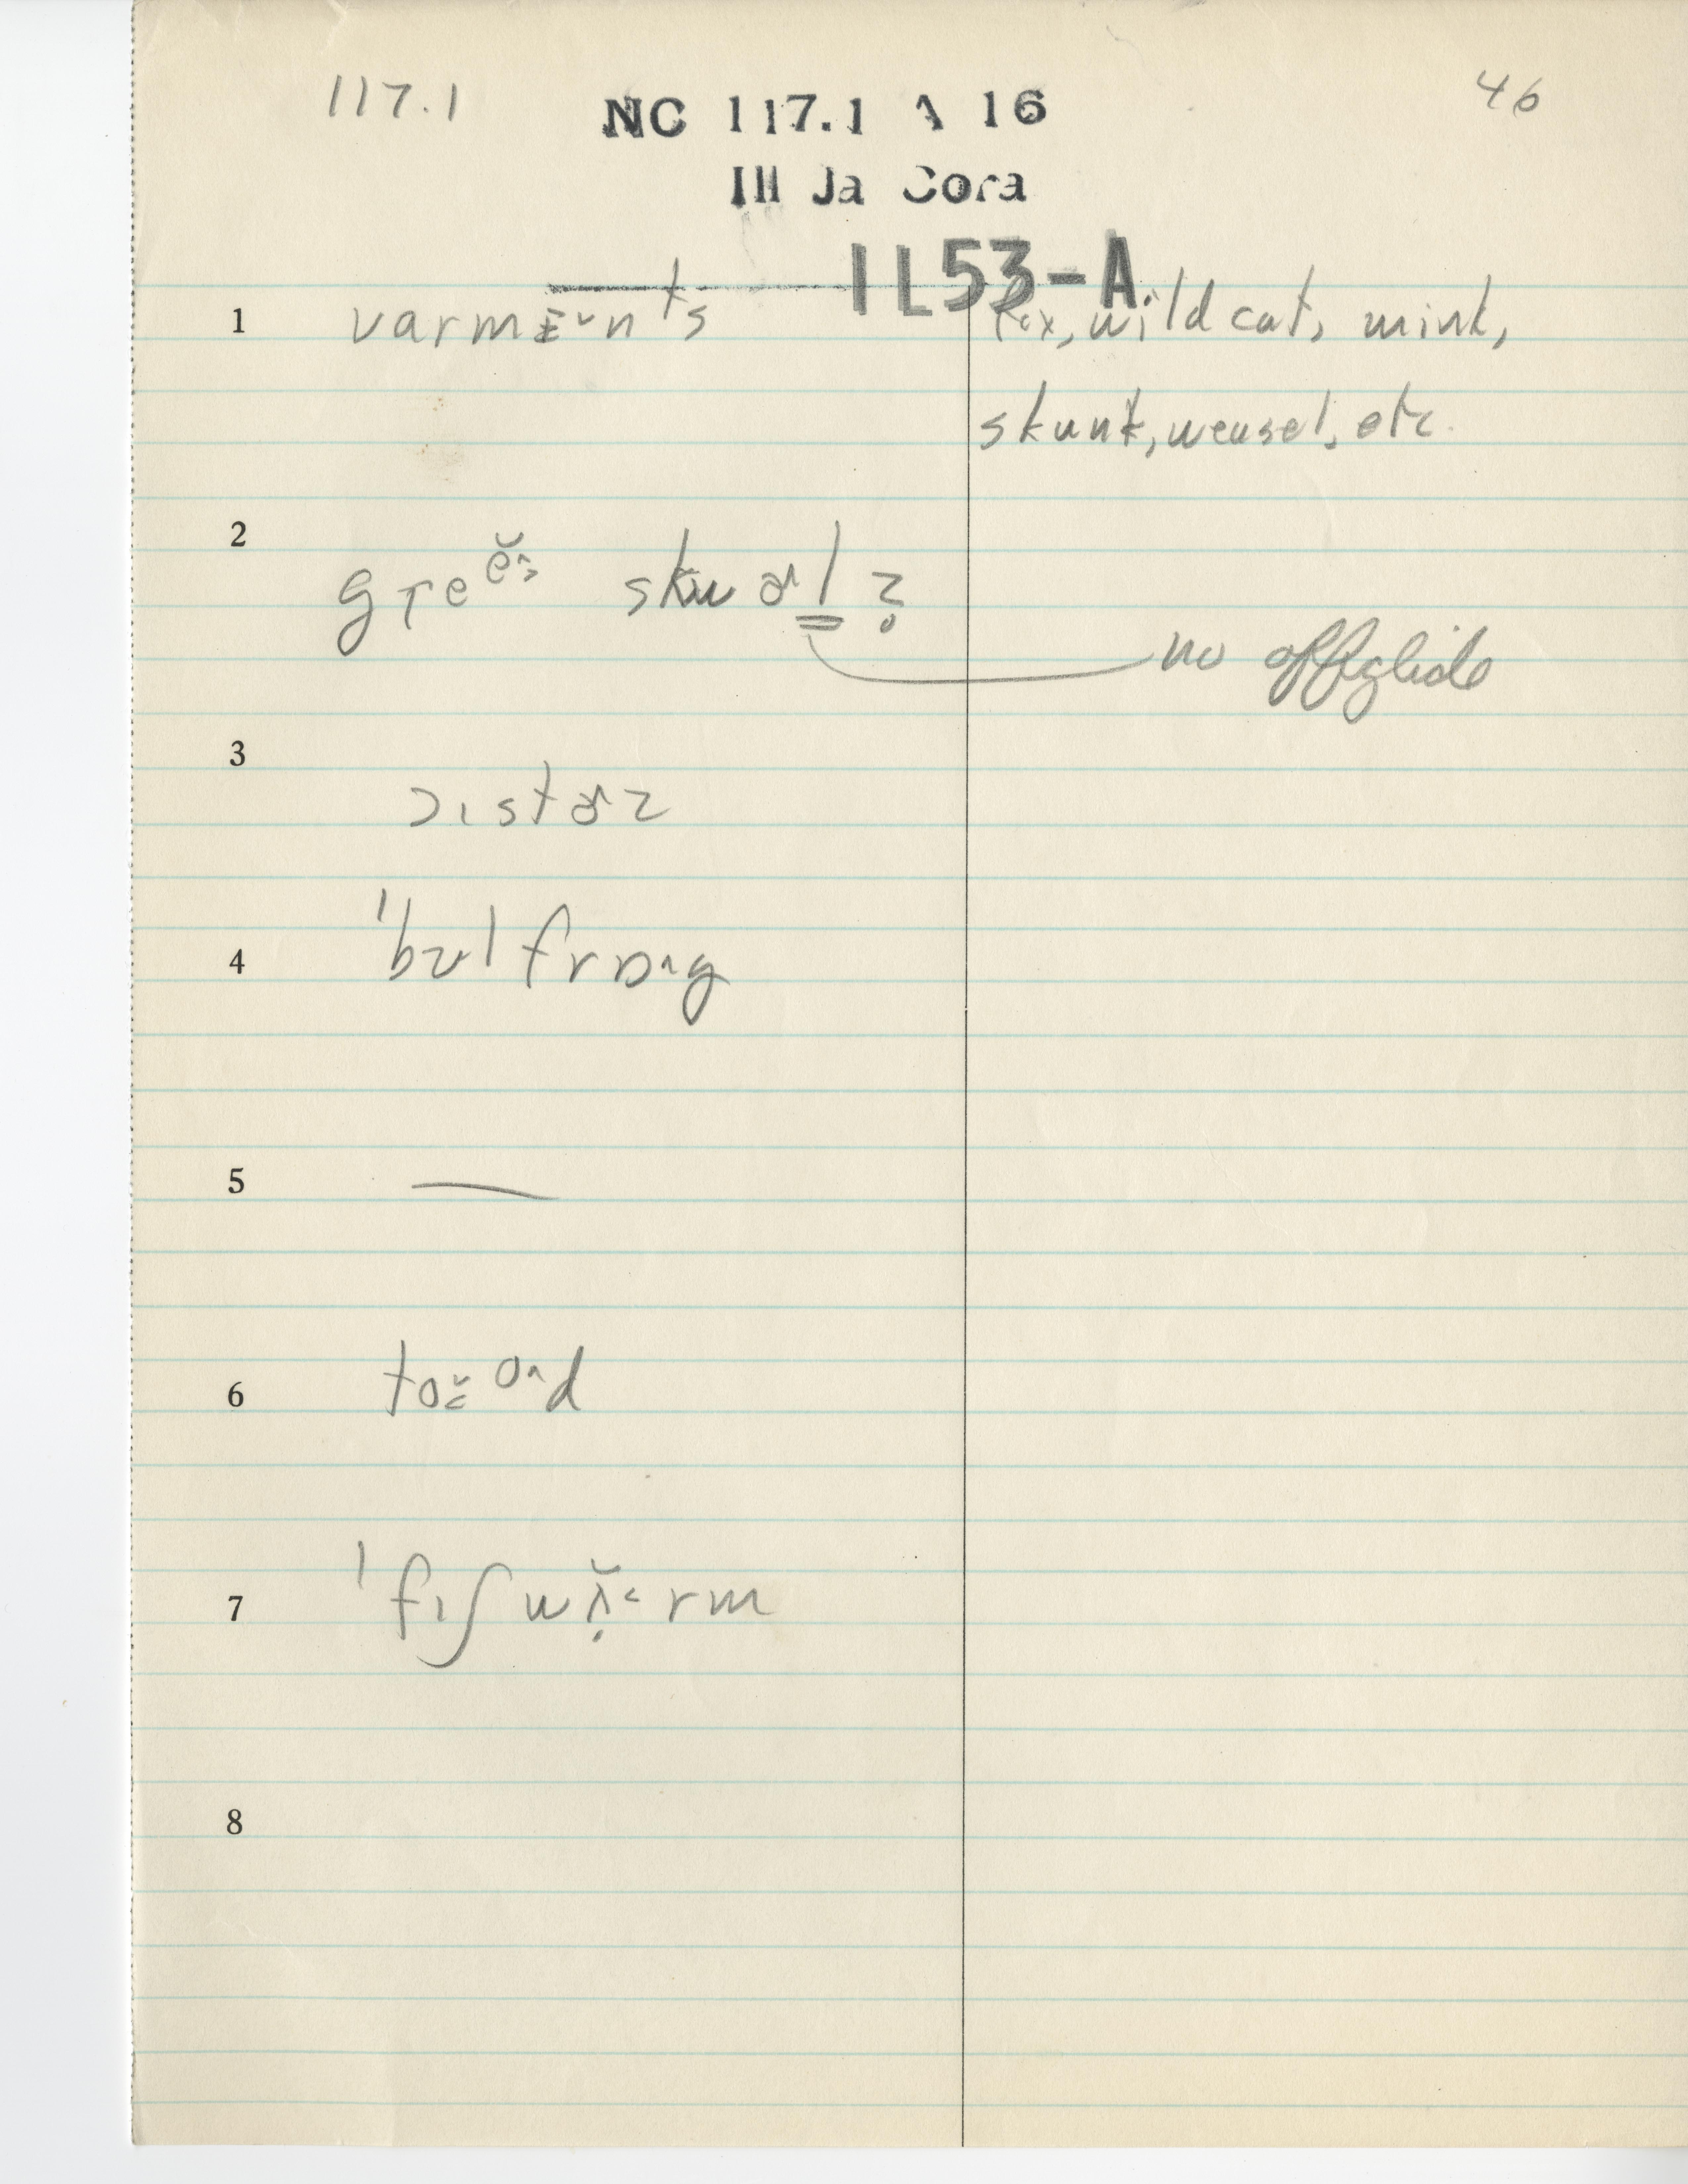 117.1 NC 117.1 A 16 46
Ill Ja Cora
IL53-A
1 varmɪ̵˯nᵗs fox, wild cat, mink,
skunk, weasel, etc.
2 greᵉ̆˃ skwɚl̳ẓ
no offglide
3 ɔɪstɚz
4 ˈbʊlfrɒ˄g
5 —
6 to o˄d
7 ˈfɪʃwʌ̆˂rm
8